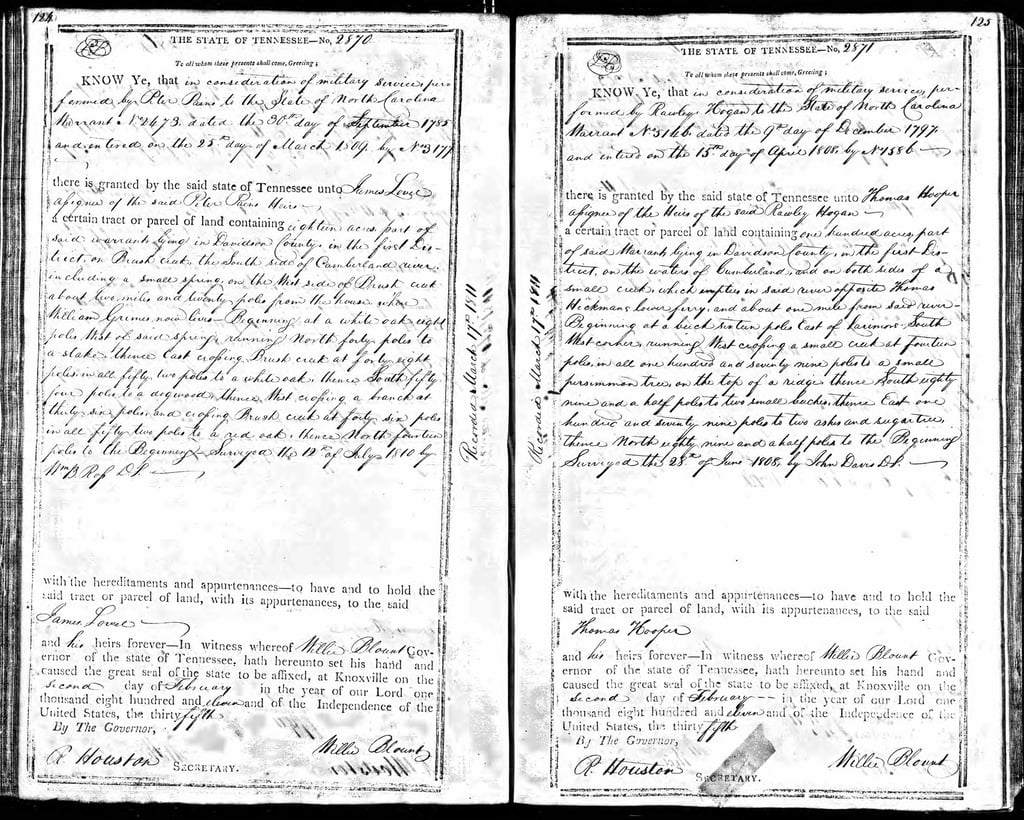 124
THE STATE OF TENNESSEE—No, 2870
To all whom these presents shall come, Greeting;
KNOW Ye, that in consideration of military service, per
formed by Peter Pains, to the State of North Carolina
Warrant No 2473 dated the 30th day of September 1785
and entered on the 25th day of March 1809, by No 3177
there is granted by the said state of Tennessee unto James Lovel
assignee of the said Peter Pains Heirs—
a certain tract or parcel of land containing eighteen acres part of
said warrant, lying in Davidson County, in the first Dis-
trict, on Brush creek, the South side of Cumberland river,
including a small spring, on the West side of Brush creek
about two miles and twenty poles from the house, where
William Grimes, now lives— Beginning at a white oak eight
poles West of said spring, running North forty poles to
a stake, thence East crossing Brush creek at forty eight
poles, in all fifty two poles to a white oak, thence South fifty
four poles to a dogwood, thence West crossing a branch at
thirty six poles, and crossing Brush creek at forty six poles
in all fifty two poles to a red oak, thence North fourteen
poles to the Beginning— Surveyed the 12th of July 1810 by
Wm B Ross D.S.
Recorded March 17th 1811
with the hereditaments and appurtenances—to have and to hold the
said tract or parcel of land, with its appurtenances, to the said
James Lovel
and his heirs forever—In witness whereof Willie Blount Gov-
ernor of the state of Tennessee, hath hereunto set his hand and
caused the great seal of the state to be affixed, at Knoxville on the
second day of February in the year of our Lord one
thousand eight hundred and eleven and of the Independence of the
United States, the thirty fifth
By The Governor,
Willie Blount
R. Houston SECRETARY.
125
THE STATE OF TENNESSEE—No, 2871
To all whom these presents shall come, Greeting;
KNOW Ye, that in consideration of military service, per-
formed by Rawley Hogan to the State of North Carolina
Warrant No 5166 dated the 9th day of December 1797
and entered on the 15th day of April 1808, by No 1586
there is granted by the said state of Tennessee unto Thomas Hooper
assignee of the Heirs of the said Rawley Hogan—
a certain tract or parcel of land containing one hundred acres, part
of said Warrant, lying in Davidson County, in the first Dis-
trict, on the waters of Cumberland, and on both sides of a
small creek, which empties in said river opposite Thomas
Hickmans, lower ferry, and about one mile from said river—
Beginning at a beech sixteen poles East of Larimors South
West corner, running West crossing a small creek at fourteen
poles, in all one hundred and seventy nine poles to a small
persimmon tree, on the top of a ridge thence South eighty
nine and a half poles to two small buches, thence East one
hundred and seventy nine poles to two ashes and sugar tree,
thence North eighty nine and a half poles to the Beginning
Surveyed the 28th of June 1808, by John Davis D.S.
Recorded March 17th 1811
with the hereditaments and appurtenances—to have and to hold the
said tract or parcel of land, with its appurtenances, to the said
Thomas Hooper
and his heirs forever—In witness whereof Willie Blount Gov-
ernor of the state of Tennessee, hath hereunto set his hand and
caused the great seal of the state to be affixed, at Knoxville on the
second day of February — in the year of our Lord one
thousand eight hundred and eleven and of the Independence of the
United States, the thirty fifth
By The Governor,
Willie Blount
R. Houston SECRETARY.